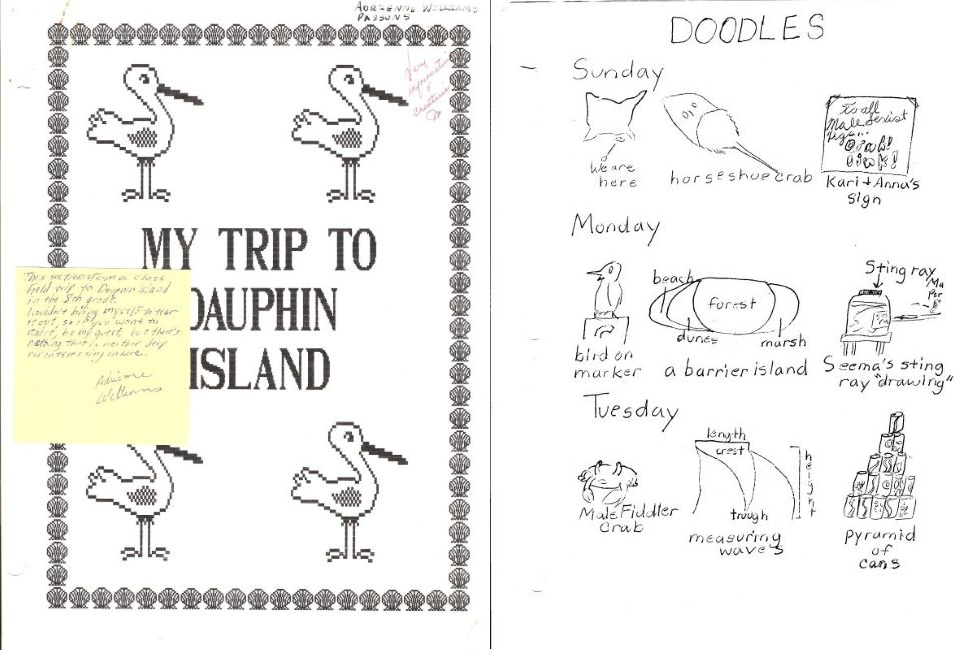 ADRIENNE WILLIAMS
PASSONS
Very
informative
&
creative
MY TRIP TO
DAUPHIN
ISLAND
This section is from a class
field trip to Dauphin Island
in the 8th grade.
I couldn't bring myself to tear
it out, so if you want to
read it, be my guest, but there's
nothing that is neither deep
nor interesting in here.
Adrienne
Williams
DOODLES
Sunday
We are
here
horseshoe crab
To all
Male Sexist
Pigs...
Oink!
Oink!
Kari + Anna's
sign
Monday
bird on
marker
beach
forest
dunes
marsh
a barrier island
Sting ray
Seema's sting
ray "drawing"
Tuesday
Male Fiddler
Crab
length
crest
height
trough
measuring
waves
pyramid
of
cans